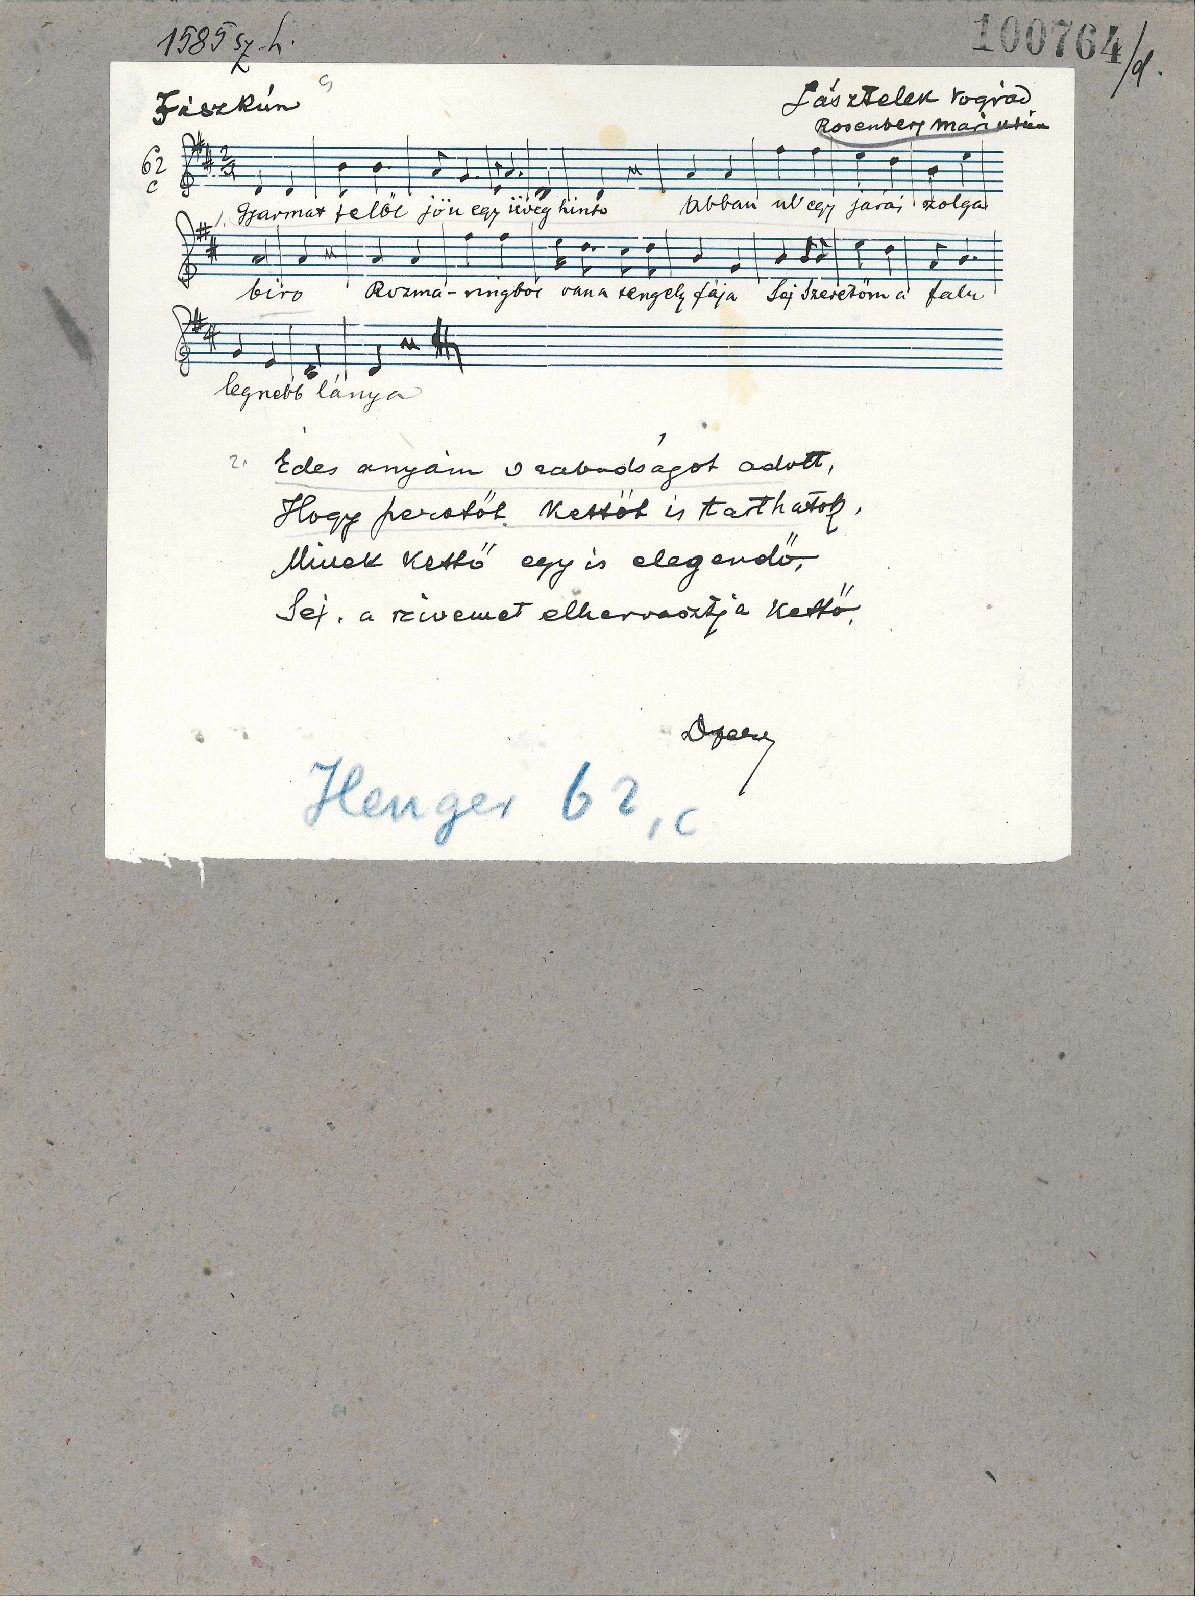 1585 sz. h.
100764/d.
Jászkún
Lásztelek Nográd
Rosenberg Mari
62
c
1. Gyarmat felöl jön egy üveg hinto Abban ül egy járás szolga
biro Rozma-ringbol vana tengely fája Sej Szeretöm a falu
legnebb lánya
2. Édes anyám szabadságot adott,
Hogy szeretöt kettöt is tarthatok,
Minek kettö egy is elegendö,
Sej, a szivemet elhervasztja kettö,
Henger 62,c